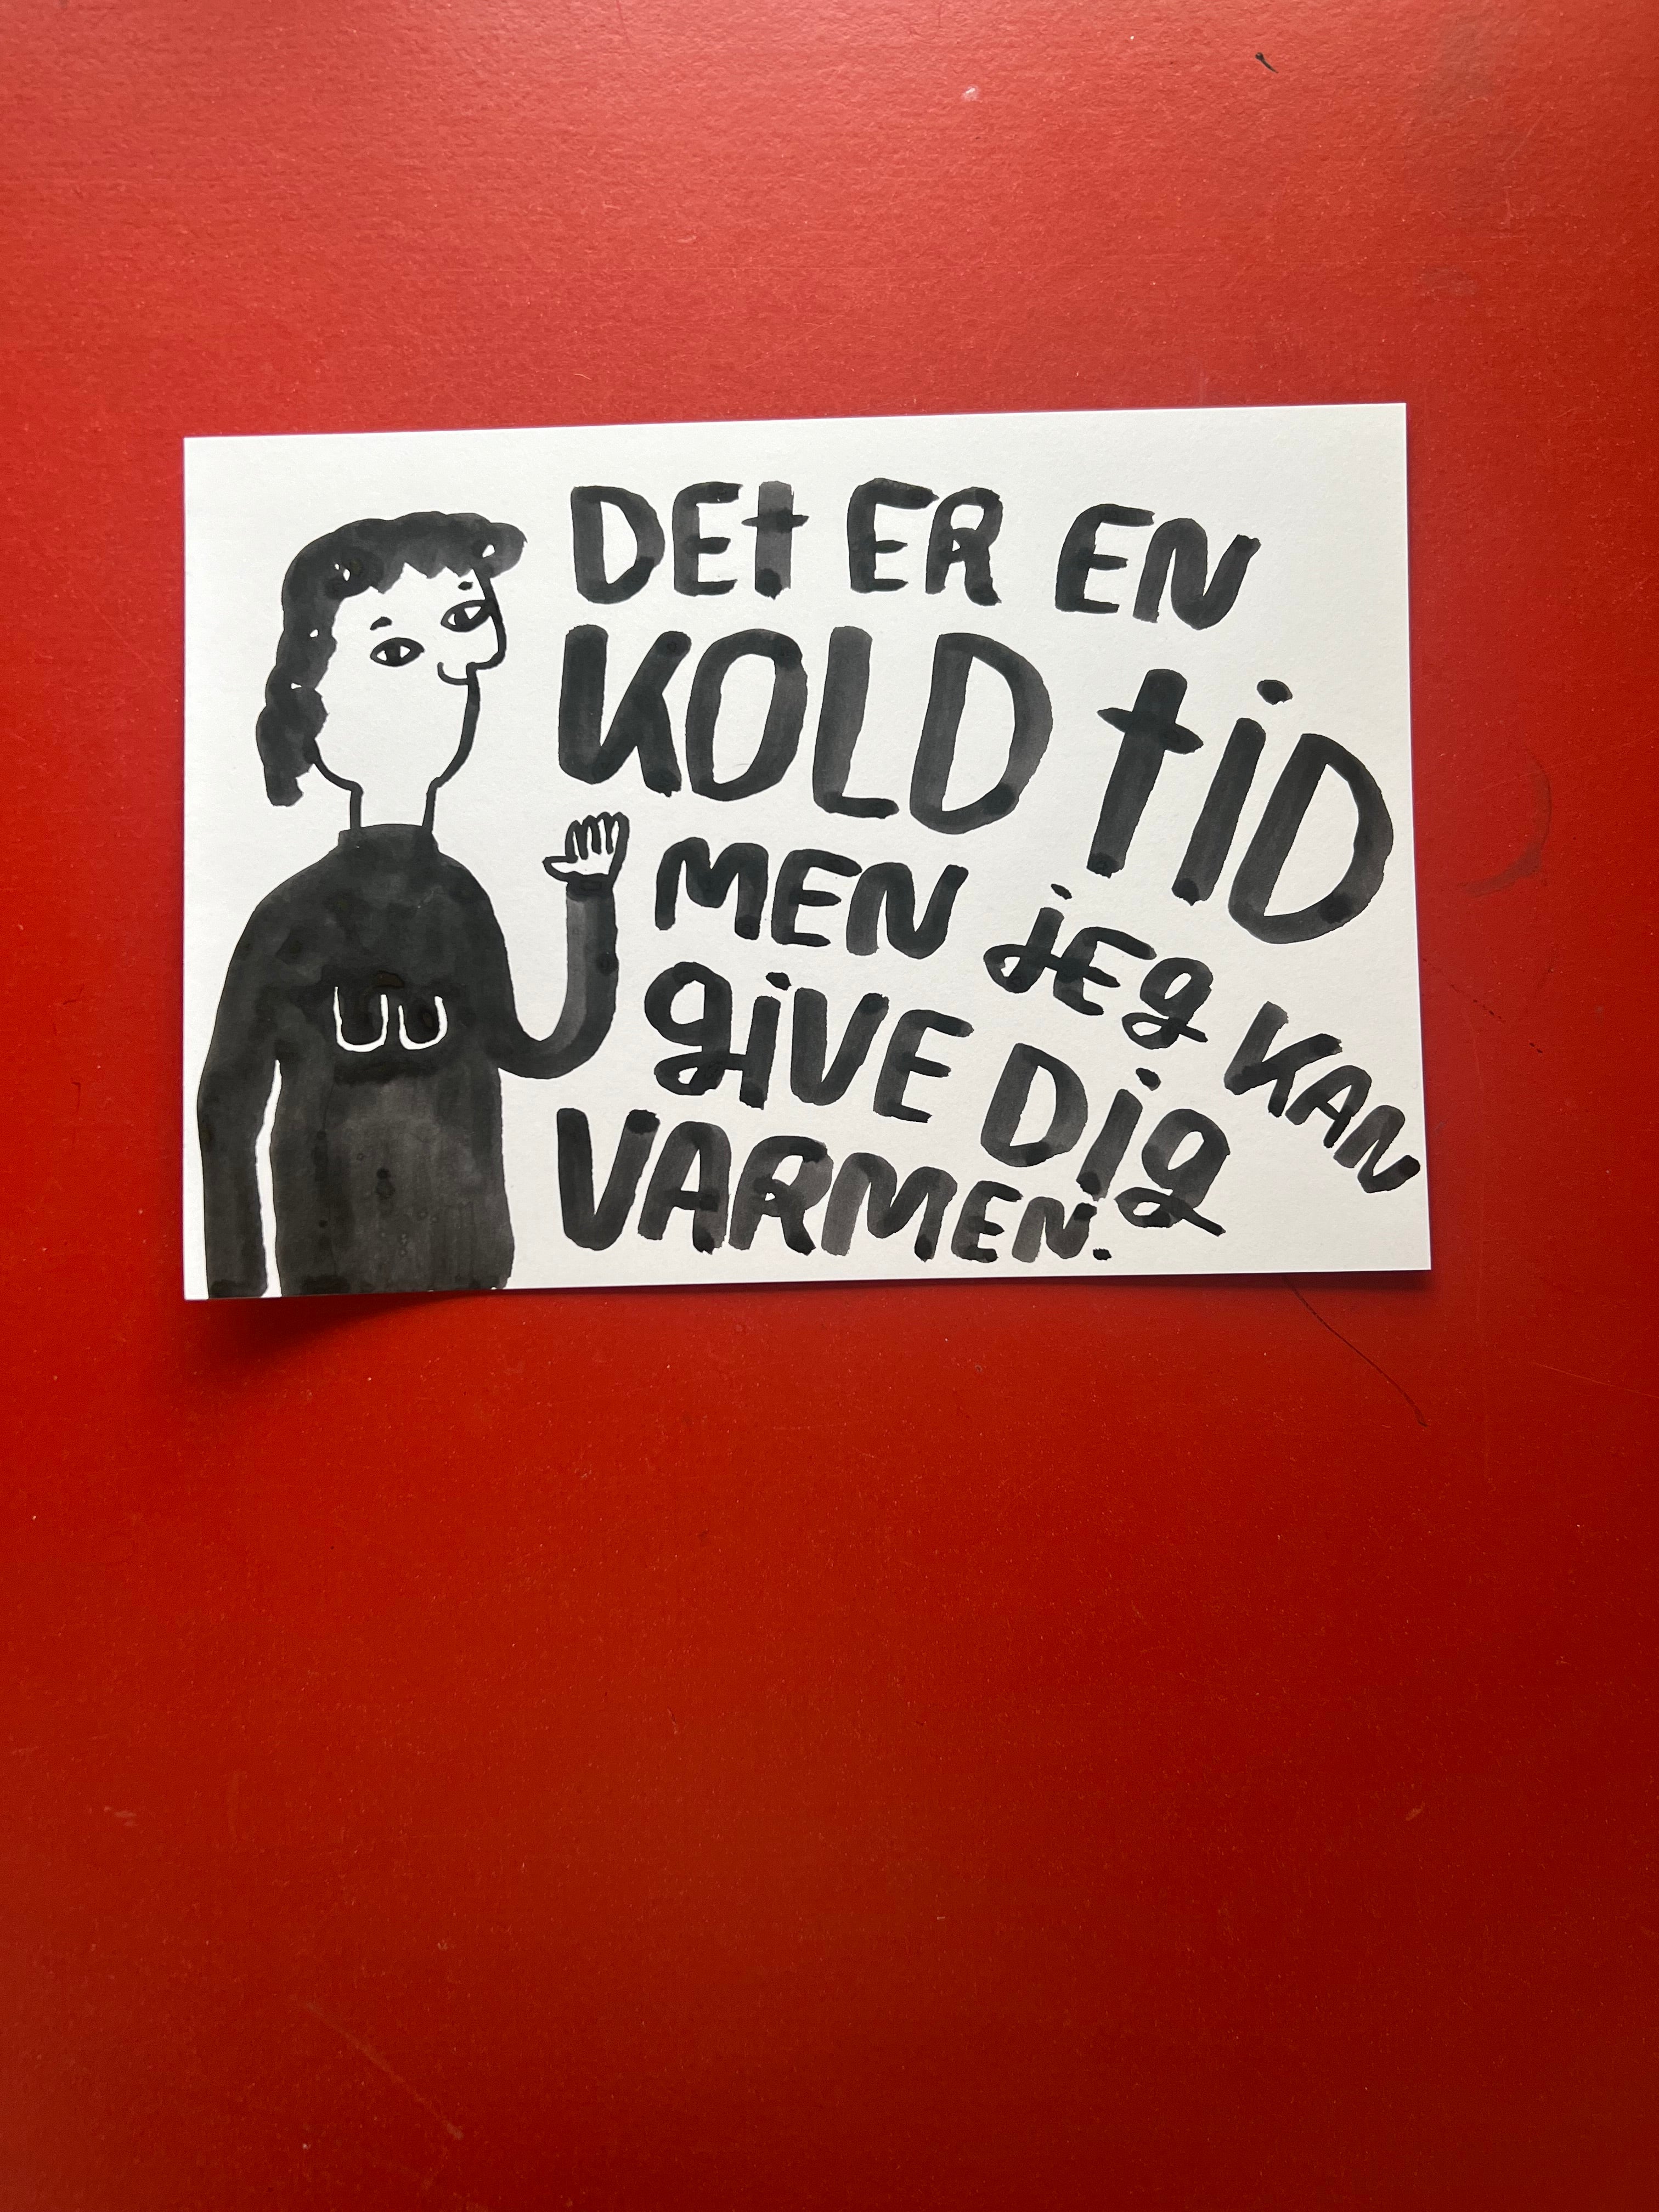 DEt ER EN
KOLD tiD
MEN jEg KAN
giVE Dig
VARMEN.